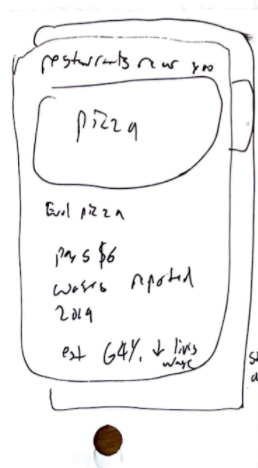 restaurants near you
pizza
Evil pizza
pays $6
wages reported
2019
est 64% ↓ living
wage